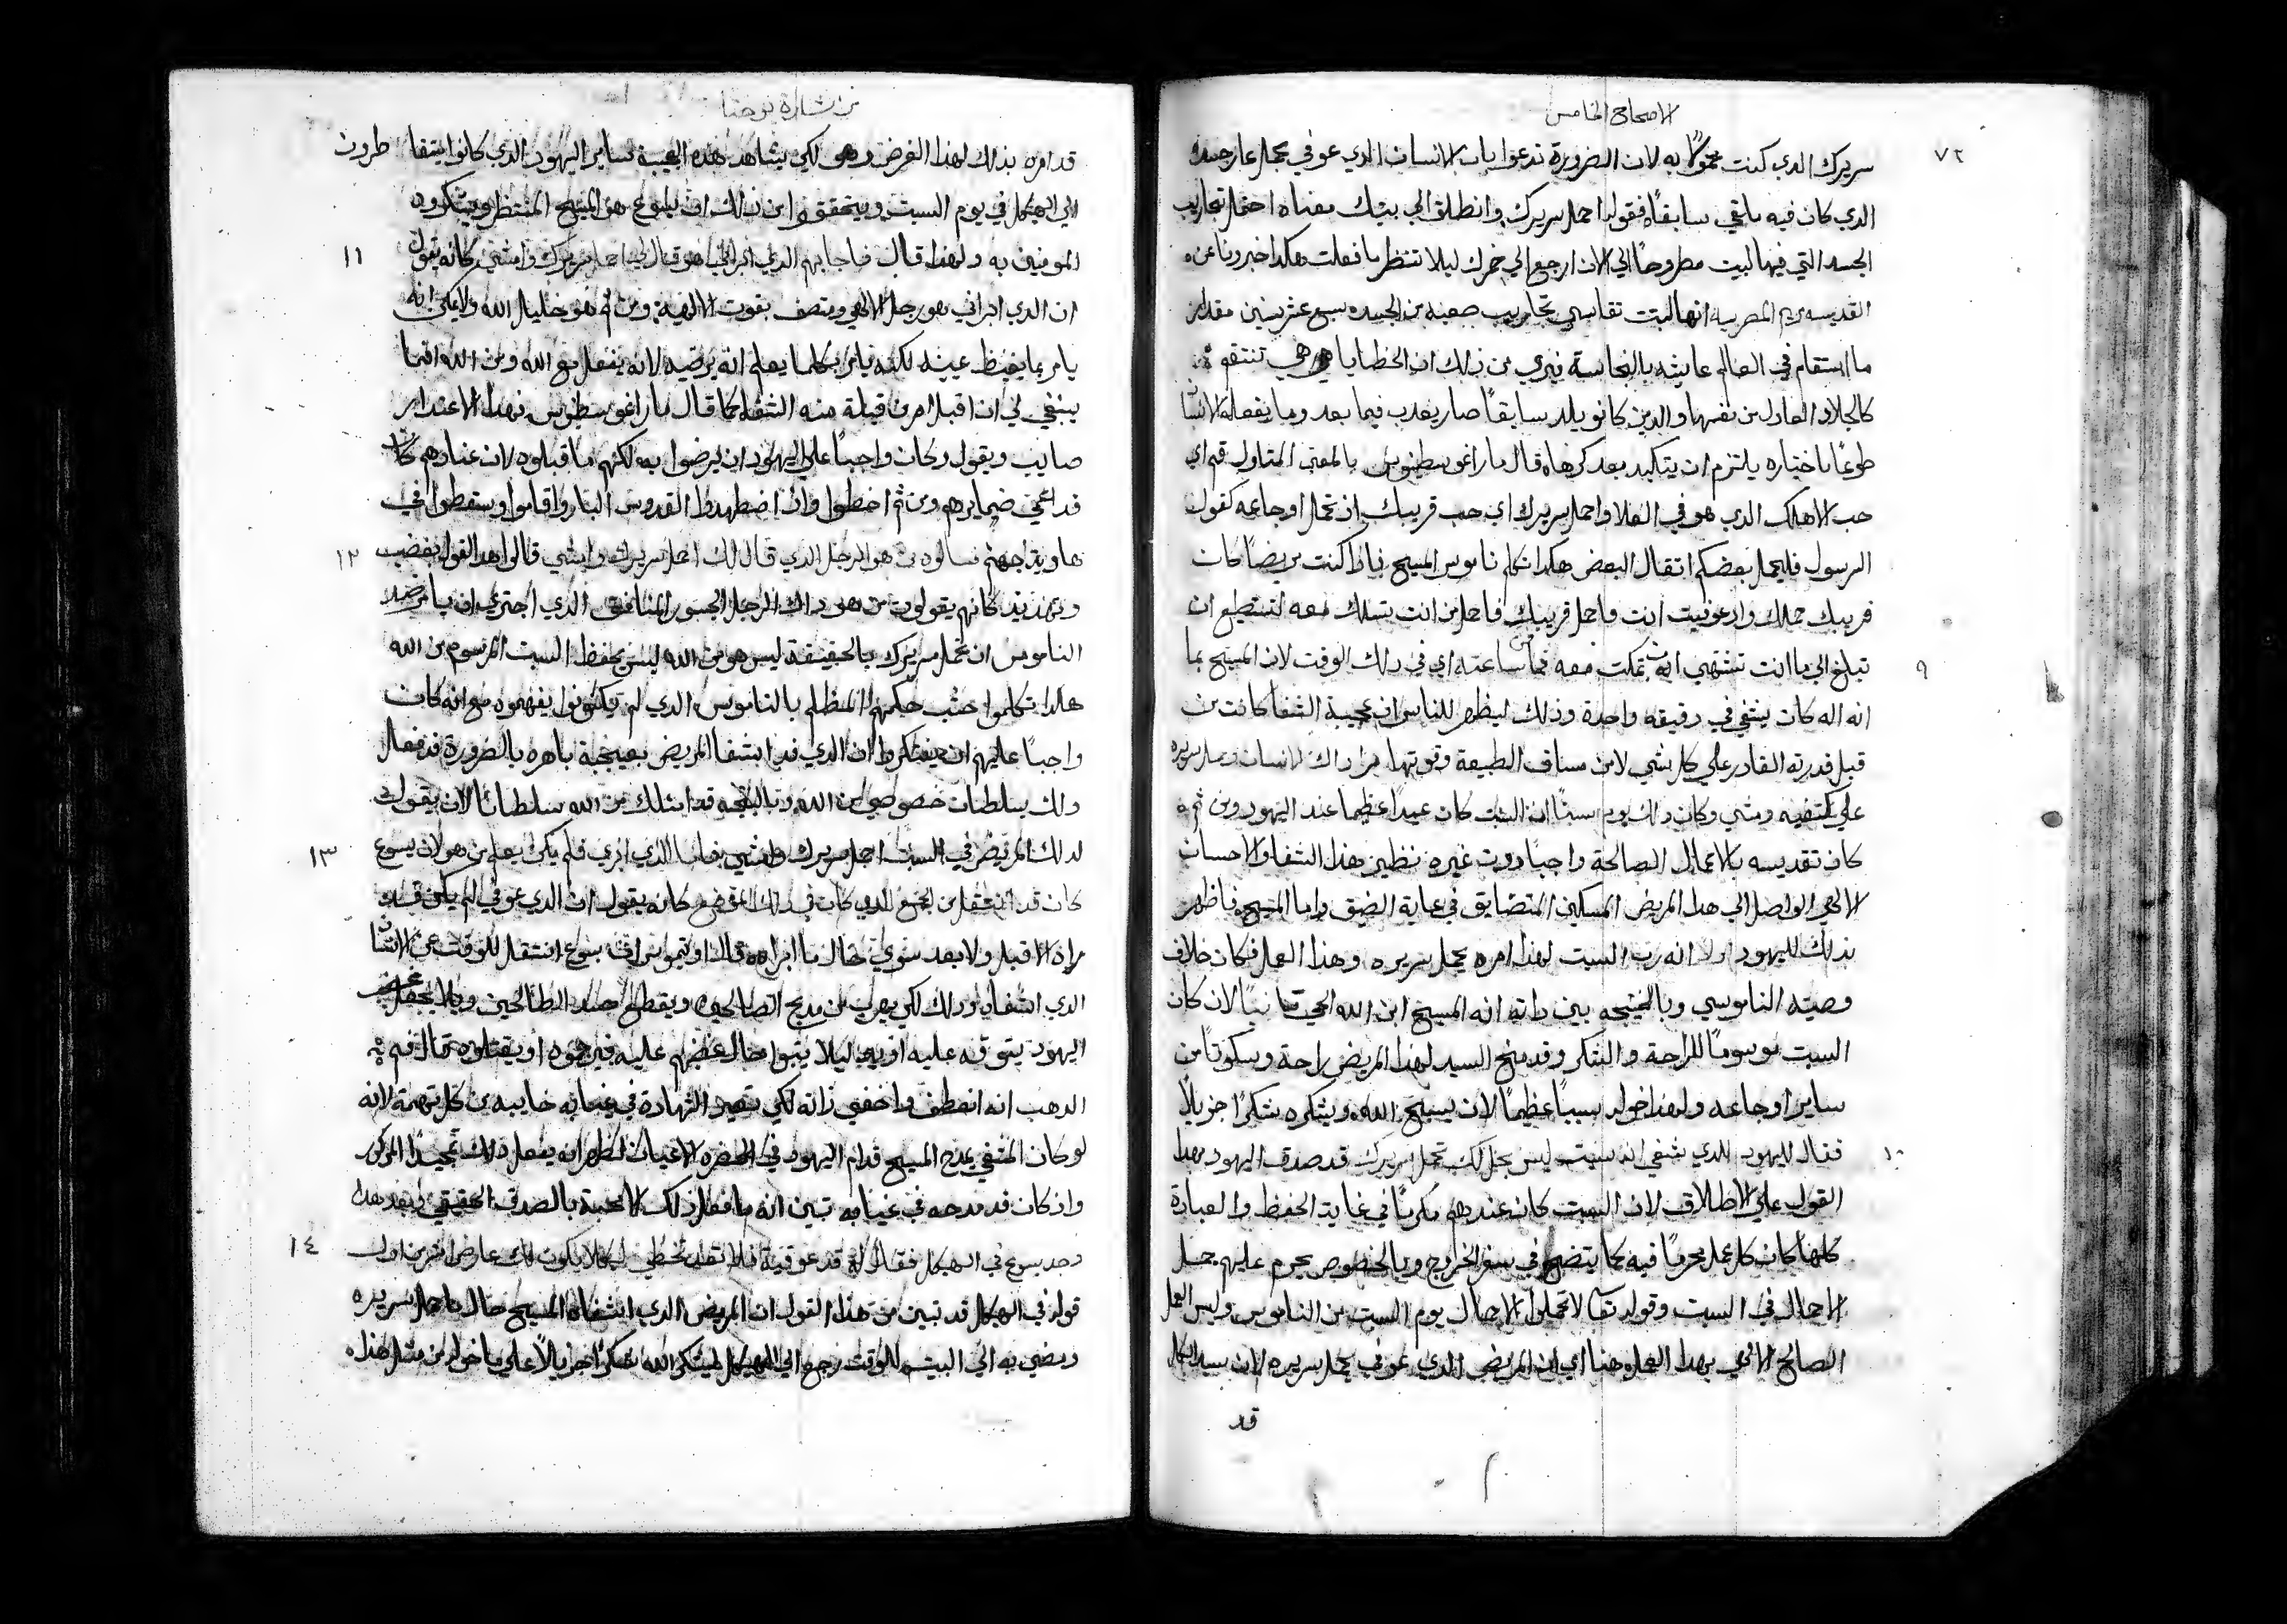 الاصحاح الخامس
٧٢
سريرك الدي كنت محمولا به لان الضرورة تدعوا بان الانسان الدي عوفي يحمل عار جسده
الدي كان فيه ملقي سابقًا فقوله احمل سريرك وانطلق الي بيتك معناه احتمل تجاريب
الجسد التي فيها لبيت مطروحًا الي الان ارجع الي خمرك ليلا تنتظر ما فعلت هكدا اخبرونا عن
القديسه مريم المصريه انها لبتت تقاسي تجاريب صعبه من الجسد سبع عشر سنين مقدار
ما استقام في العالم عايشه بالنجاسة فيري من ذلك ان الخطايا هي هي تنتقم
كالجلاد العادل من نفسها والدين كانو يلد سابقًا صار يعدب فيما بعد وما يفعله الانسان
طوعًا باختياره يلتزم ان يتكبد بعد كرهًا قال ماراغوسطينوس بالمعني المتاول قم اي
حب الاهك الدي هو في العلا واحمل سريرك اي حب قريبك ان تحمل اوجاعه كقول
الرسول فليحمل بعضكم اتقال البعض هكدا تكلم ناموس المسيح فاذا كنت مريضًا كان
قريبك حملك واد عوفيت انت فاحمل قريبك فاحمل من انت تسلك معه لتستطيع ان
٩
تبلغ الي ما انت تشتهي ان تمكت معه فمن ساعته اي في دلك الوقت لان المسيح بما
انه اله كان يشفي في دقيقه واحدة وذلك ليظهر للناس ان عجيبة الشفا كانت من
قبل قدرته القادر علي كل شي لا من مساف الطبيعة وقوتها برا داك الانسان وحمل سريره
علي كتفيه ومشي وكان دلك يوم سبتًا ان السبت كان عيدًا عظيما عند اليهود ومن ثم
كان تقديسه بالاعمال الصالحة واجبًا دون غيره نظير هذا الشفا والاحسان
الالهي الواصل الي هدا المريض المسكين المتضايق في غاية الضيق واما المسيح فاظهر
بذلك لليهود اولا انه رب السبت لهذا امره يحمل سريره وهذا العمل فكان خلاف
وصيته الناموسي وبالنتيجه بين داته انه المسيح ابن الله الحي تانيًا لان كان
السبت موسومًا للراحة والشكر وقد منح السيد لهذا المريض راحة وسكوتًا من
ساير اوجاعه ولهذا خوله سببًا عظيمًا لان يسبح الله ويشكره شكرًا جزيلًا
١٠
فقال لليهود للدي شفي انه سبت ليس يحل لك تحمل سريرك قد صدق اليهود بهدا
القول علي الاطلاق لان السبت كان عندهم مكرمًا في غاية الحفظ والعبادة
كلها كان كل عمل محرمًا فيه كما يتضح في سفر الخروج وبالخصوص يحرم عليهم حمل
الاحمال في السبت وقوله تعا لا تحملوا الاحمال يوم السبت من الناموس وليس العمل
الصالح الالهي بهدا العمل هنا اي ان المريض الدي عوفي يحمل سريره لان سيد الكل
قد
من بشارة يوحنا
قد امره بذلك لهذا الغرض وهي لكي يشاهد هذه العجيبة ساير اليهود الدي كانوا يتقاطرون
الي الهيكل في يوم السبت ويتحققوا من ذلك ان يسوع هو المسيح المنتظر ويشكروه
١١
المومنين به ولهذا قال فاجابهم الدي ابراني هو قال لي احمل سريرك وامشي كانه يقول
ان الدي ابراني هو رجل الاهي ومتصف بقوت الالهية ومن ثم هو خليل الله ولا يمكن انه
يامر بما يغيظ عينيه لكنه يامر بكلما يعلم انه يرضيه لانه يفعل مع الله ومن الله انما
ينبغي لي ان اقبل امر من قبلة منه الشفا كما قال ماراغوسطينوس فهدا الاعتدار
صايب ويقول وكان واجبًا علي اليهود ان يرضوا به لكنهم ما قبلوه لان عنادهم كان
قد اعمي ضمايرهم ومن ثم اخطوا وان اضطهدوا القدوس البار واقاموا وسقطوا في
١٢
هاوية جهنم فسالوه من هو الرجل الذي قال لك احمل سريرك وامشي قالوا هدا القول بغضب
وتهديد كانهم يقولون من هو داك الرجل الجسور المنافق الذي اجتري ان يامر ضد
الناموس ان تحمل سريرك بالحقيقة ليس هو من الله ليس يحفظ السبت المرسوم من الله
هكدا تكلموا حسب حكمهم المظلم بالناموس الدي لم يكونوا يفهموه مع انه كان
واجبًا عليهم ان يفتكروا ان الدي قد اشفا المريض بعجيبة باهره بالضرورة قد فعل
دلك بسلطان خصوصي من الله وبالنتيجه قد امتلك من الله سلطانًا لان يقول
١٣
لدلك المريض في السبت احمل سريرك وامشي فاما الدي ابري فلم يكن يعلم من هو لان يسوع
كان قد انتقل من الجمع الدي كان في دلك الموضع كانه يقول ان الدي عوفي لم يكن قد
راه الا قبل ولا بعد سوي حال ما ابراه قال اوتيموس ان يسوع انتقل للوقت عن الانسان
الدي اشفاه ودلك لكي يهرب من مديح الصالحين ويقطع حسد الطالحين وليلا يحصل غضب
اليهود يتوقه عليه او يهيج ليلا يتبوا حال غضبهم عليه فيرجموه او يقتلوه قال فم
الدهب انه انعطف واخفي ذاته لكي تصير الشهادة في غيابه خاليه من كل تهمة لانه
لو كان المشفي يمدح المسيح قدام اليهود في الحضره الاعيان لظهر انه يفعل ذلك تمجيدًا المدكور
واذ كان قد مدحه في غيابه تبين انه ما فعل ذلك الا محبة بالصدق الحقيقي وبعد هدا
١٤
وجد يسوع في الهيكل فقال له قد عوفيت فلا تعد تخطي ليلا يكون لك عارض اشر من اول
قوله في الهيكل قد تبين من هذا القول ان المريض الدي اشفاه المسيح حال ما حمل سريره
ومضي به الي البيت للوقت رجع الي الهيكل ليشكر الله شكرًا جزيلًا علي ما خوله من مثل هذه